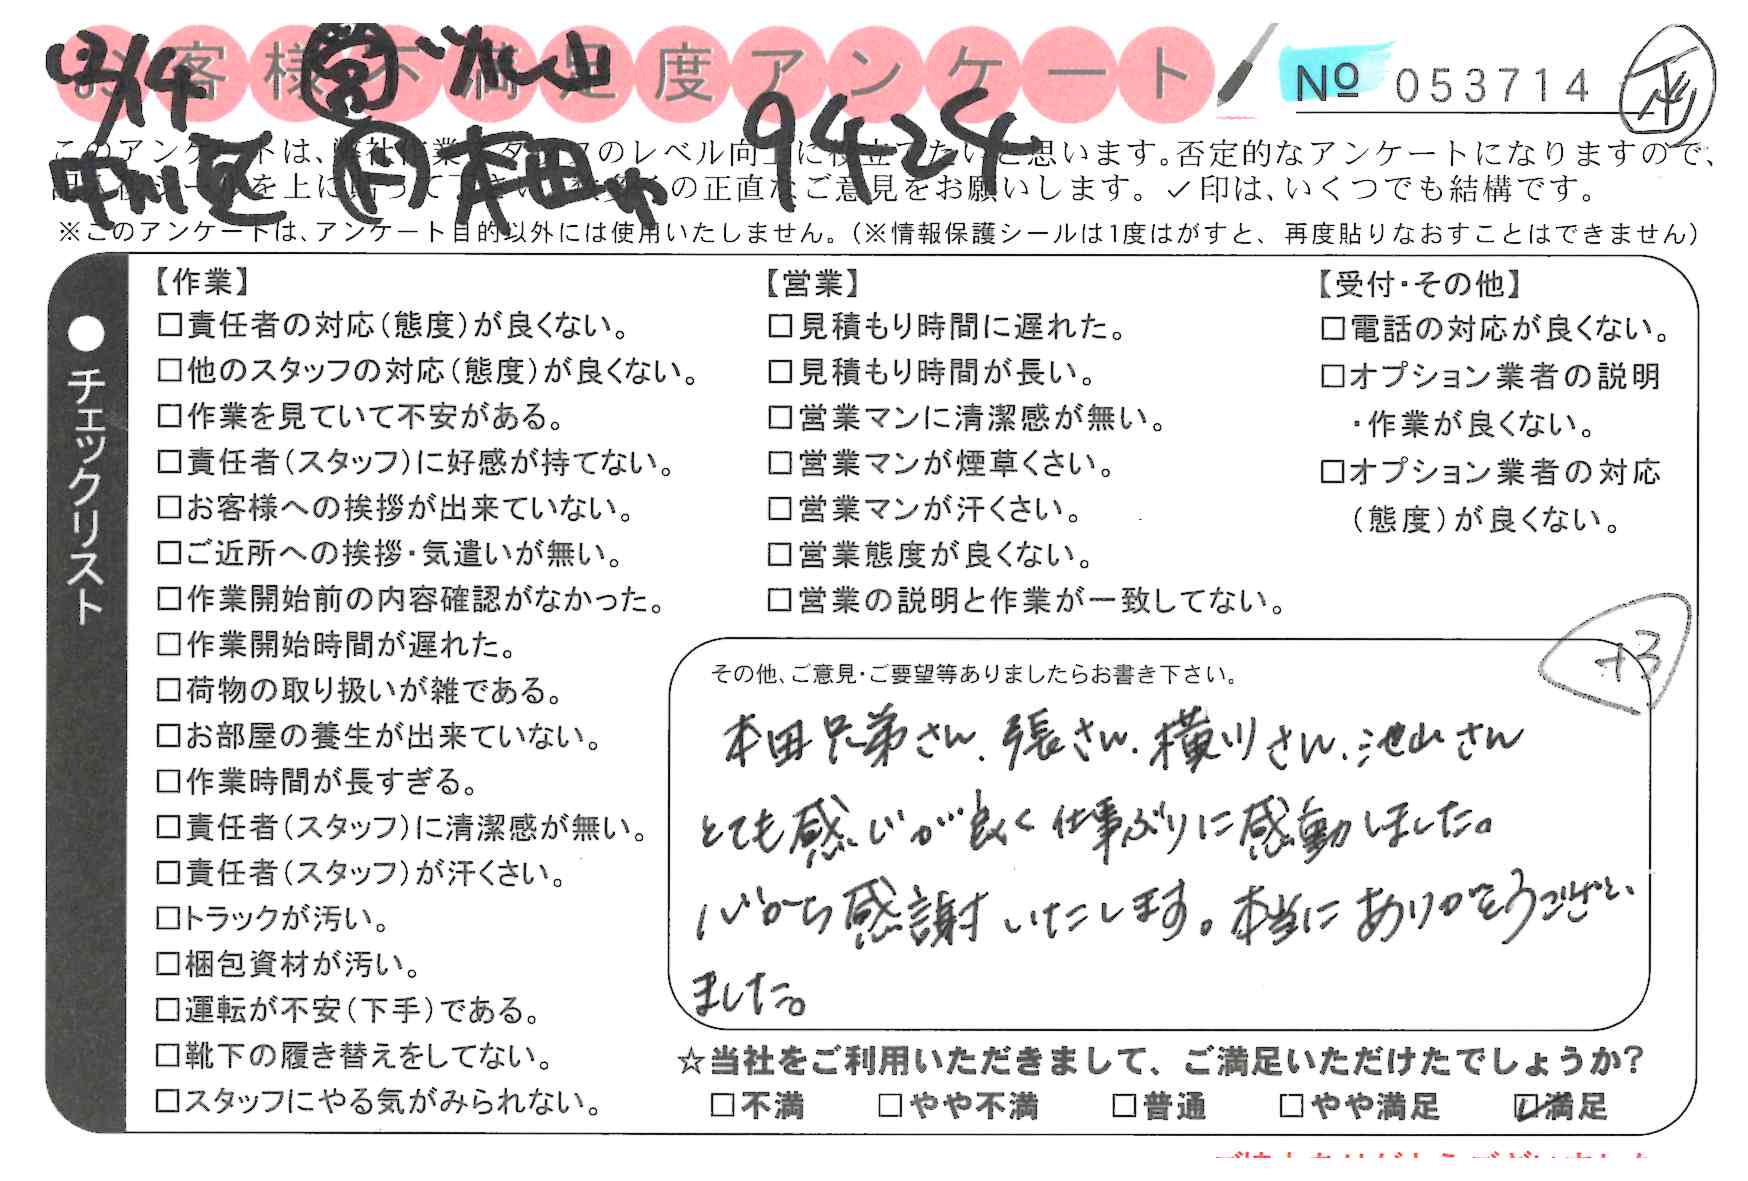 お客様不満足度アンケート
12/14
営
No 053714
中川区 本田 9424
このアンケートは、弊社作業スタッフのレベル向上に役立てたいと思います。否定的なアンケートになりますので、
を上に貼って下さい。お客様の正直なご意見をお願いします。✓印は、いくつでも結構です。
※このアンケートは、アンケート目的以外には使用いたしません。(※情報保護シールは1度はがすと、再度貼りなおすことはできません)
●チェックリスト
【作業】
□責任者の対応(態度)が良くない。
□他のスタッフの対応(態度)が良くない。
□作業を見ていて不安がある。
□責任者(スタッフ)に好感が持てない。
□お客様への挨拶が出来ていない。
□ご近所への挨拶・気遣いが無い。
□作業開始前の内容確認がなかった。
□作業開始時間が遅れた。
□荷物の取り扱いが雑である。
□お部屋の養生が出来ていない。
□作業時間が長すぎる。
□責任者(スタッフ)に清潔感が無い。
□責任者(スタッフ)が汗くさい。
□トラックが汚い。
□梱包資材が汚い。
□運転が不安(下手)である。
□靴下の履き替えをしてない。
□スタッフにやる気がみられない。
【営業】
□見積もり時間に遅れた。
□見積もり時間が長い。
□営業マンに清潔感が無い。
□営業マンが煙草くさい。
□営業マンが汗くさい。
□営業態度が良くない。
□営業の説明と作業が一致してない。
【受付・その他】
□電話の対応が良くない。
□オプション業者の説明
・作業が良くない。
□オプション業者の対応
(態度)が良くない。
+3
その他、ご意見・ご要望等ありましたらお書き下さい。
本田兄弟さん、張さん、横川さん、池山さん
とても感じが良く仕事ぶりに感動しました。
心から感謝いたします。本当にありがとうござい
ました。
☆当社をご利用いただきまして、ご満足いただけたでしょうか?
□不満 □やや不満 □普通 □やや満足 ☑満足